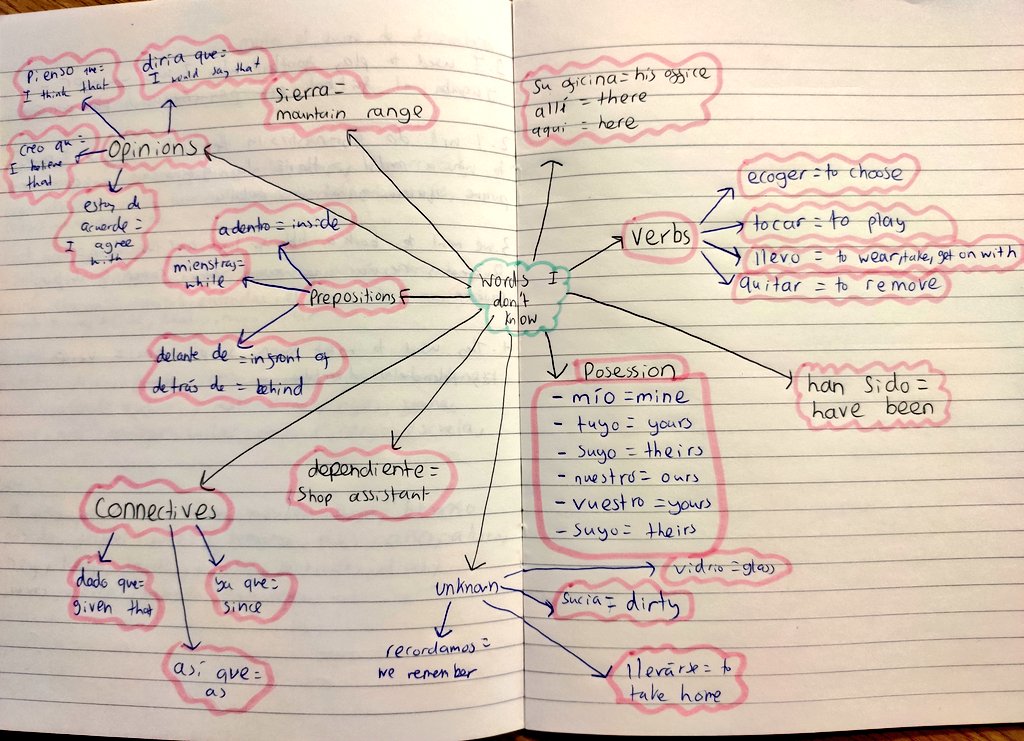 Pienso que=
I think that
diría que=
I would say that
sierra=
mountain range
creo qu=
I believe
that
Opinions
estoy de
acuerdo=
I agree
with
adentro=inside
mienstras=
while
Prepositions
delante de =infront of
detrás de = behind
Connectives
dado que=
given that
ya que=
since
así que=
as
dependiente=
Shop assistant
words I
don't
know
su oficina=his office
allí = there
aquí = here
Verbs
ecoger=to choose
tocar=to play
llevo = to wear,take,get on with
quitar = to remove
han sido=
have been
Posession
- mío =mine
- tuyo = yours
- suyo = theirs
- nuestro= ours
- vuestro =yours
- suyo= theirs
unknown
vidrio=glass
sucia= dirty
recordamos=
we remember
llevárse= to
take home